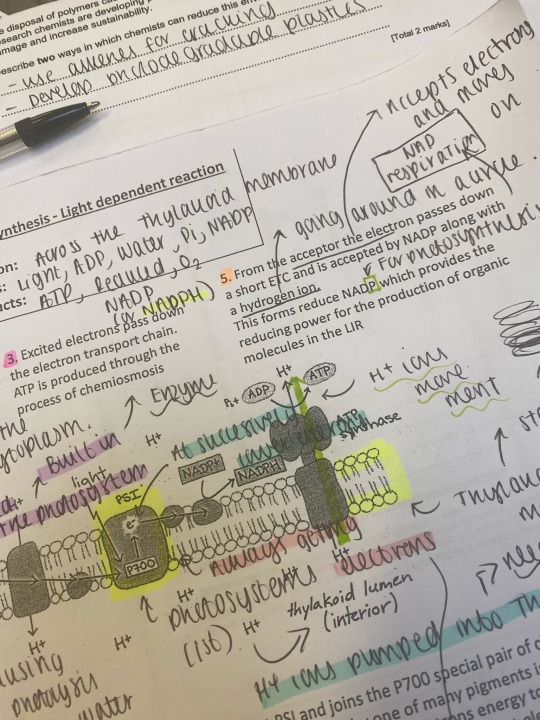 e disposal of polymers ca
search chemists are developing
mage and increase sustainability.
escribe two ways in which chemists can reduce this en
- use alkenes for cracking
- Develop biodegradable plastics
[Total 2 marks]
Accepts electrons
and moves
on
NAD
respiration
ynthesis - Light dependent reaction
on: Across the thylakoid membrane
s: Light, ADP, water, Pi, NADP
ucts: ATP, Reduced, O2
NADP
(or NADPH)
going around in a
5. From the acceptor the electron passes down
a short ETC and is accepted by NADP along with
a hydrogen ion.
For photosynthesis
This forms reduce NADP which provides the
reducing power for the production of organic
molecules in the LIR
3. Excited electrons pass down
the electron transport chain.
ATP is produced through the
process of chemiosmosis
Enzyme
the
cytoplasm.
Built in
the photosystem
light
PSI
e-
P700
H+
H+
At
NADP+
NADPH
Pi+
ADP
ATP
H+
ATP
synthase
H+ ions
move
ment
Always
electrons
photosystems
(1st)
H+
H+
H+
H+
H+
H+
thylakoid lumen
(interior)
H+ ions pumped into Th
using
water
PSI and joins the P700 special pair of
one of many pigments i
energy to